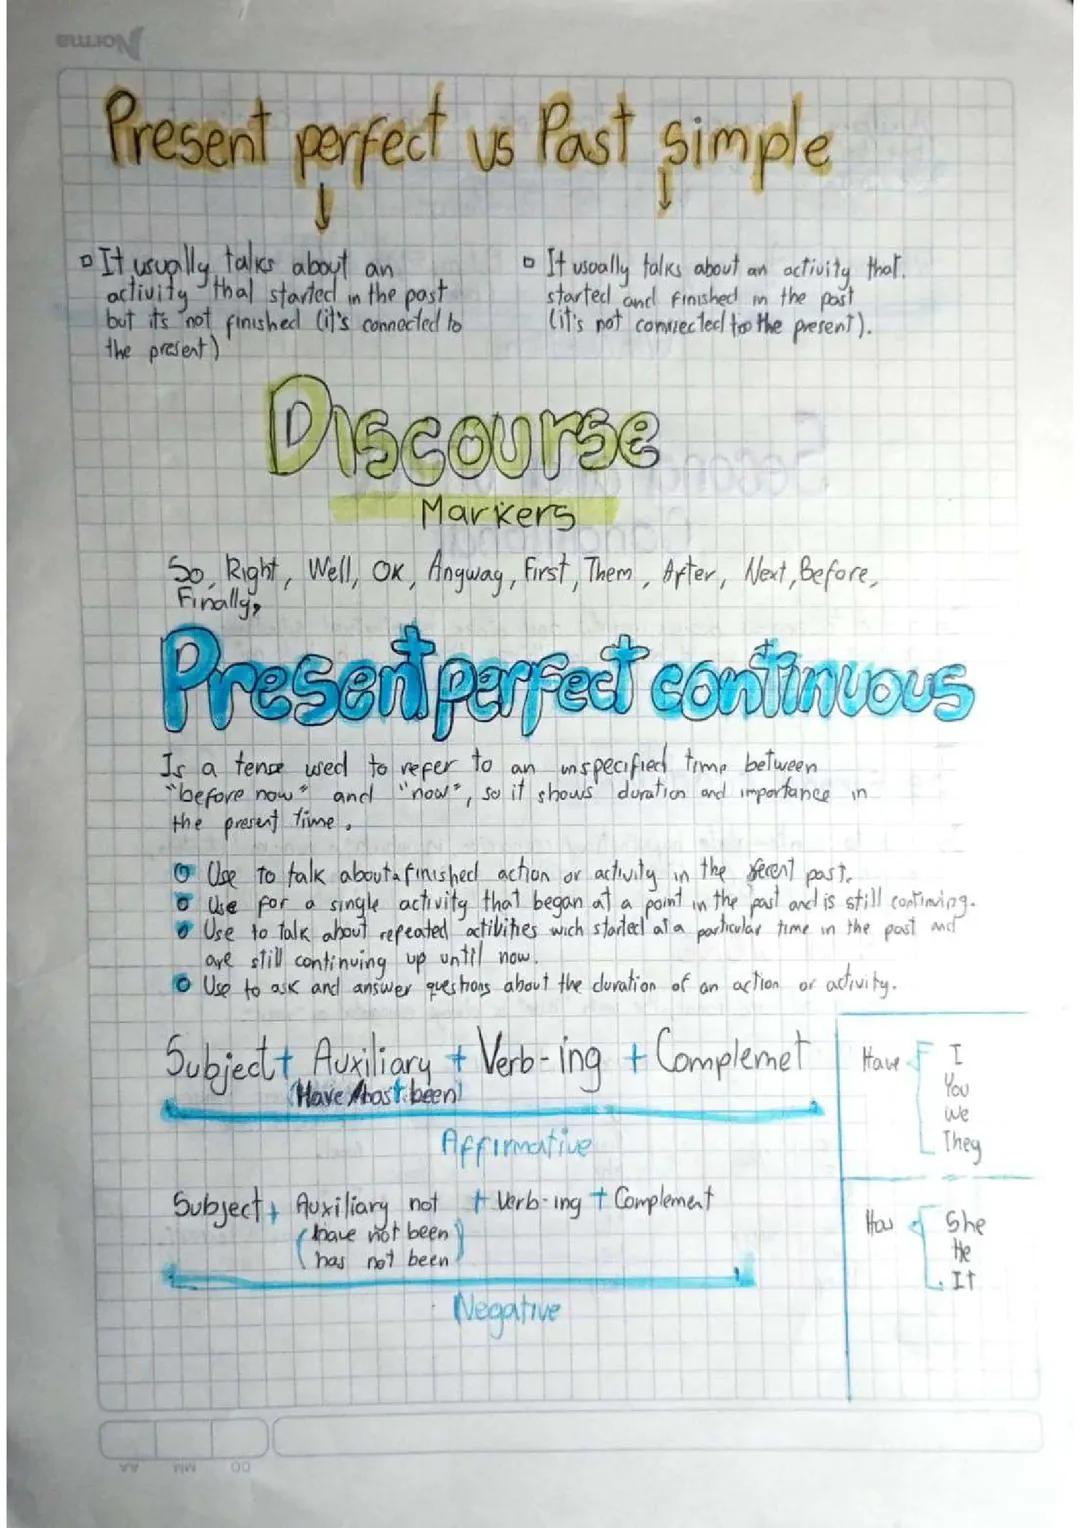 Norma
Present perfect vs Past simple
It usually talks about an
activity that started in the past
but it's not finished (it's connected to
the present)
It usually talks about an activity that.
started and finished in the past
(it's not connected too the present).
Discourse
Markers
So, Right, Well, OK, Angway, First, Them, After, Next, Before,
Finally,
Present perfect continuous
Is a tense used to refer to an unspecified time between
"before now" and "now", so it shows duration and importance in
the present time.
Use to talk about a finished action or activity in the recent past.
Use for a single activity that began at a point in the past and is still continuing.
Use to talk about repeated activities wich started at a particular time in the past and
are still continuing up until now.
Use to ask and answer questions about the duration of an action or activity.
Subject + Auxiliary + Verb-ing + Complemet
(Have/has + been)
Affirmative
Have
I
You
We
They
Subject + Auxiliary not + Verb-ing + Complement
(have not been)
(has not been)
Negative
Has
She
He
It
AA MM DD